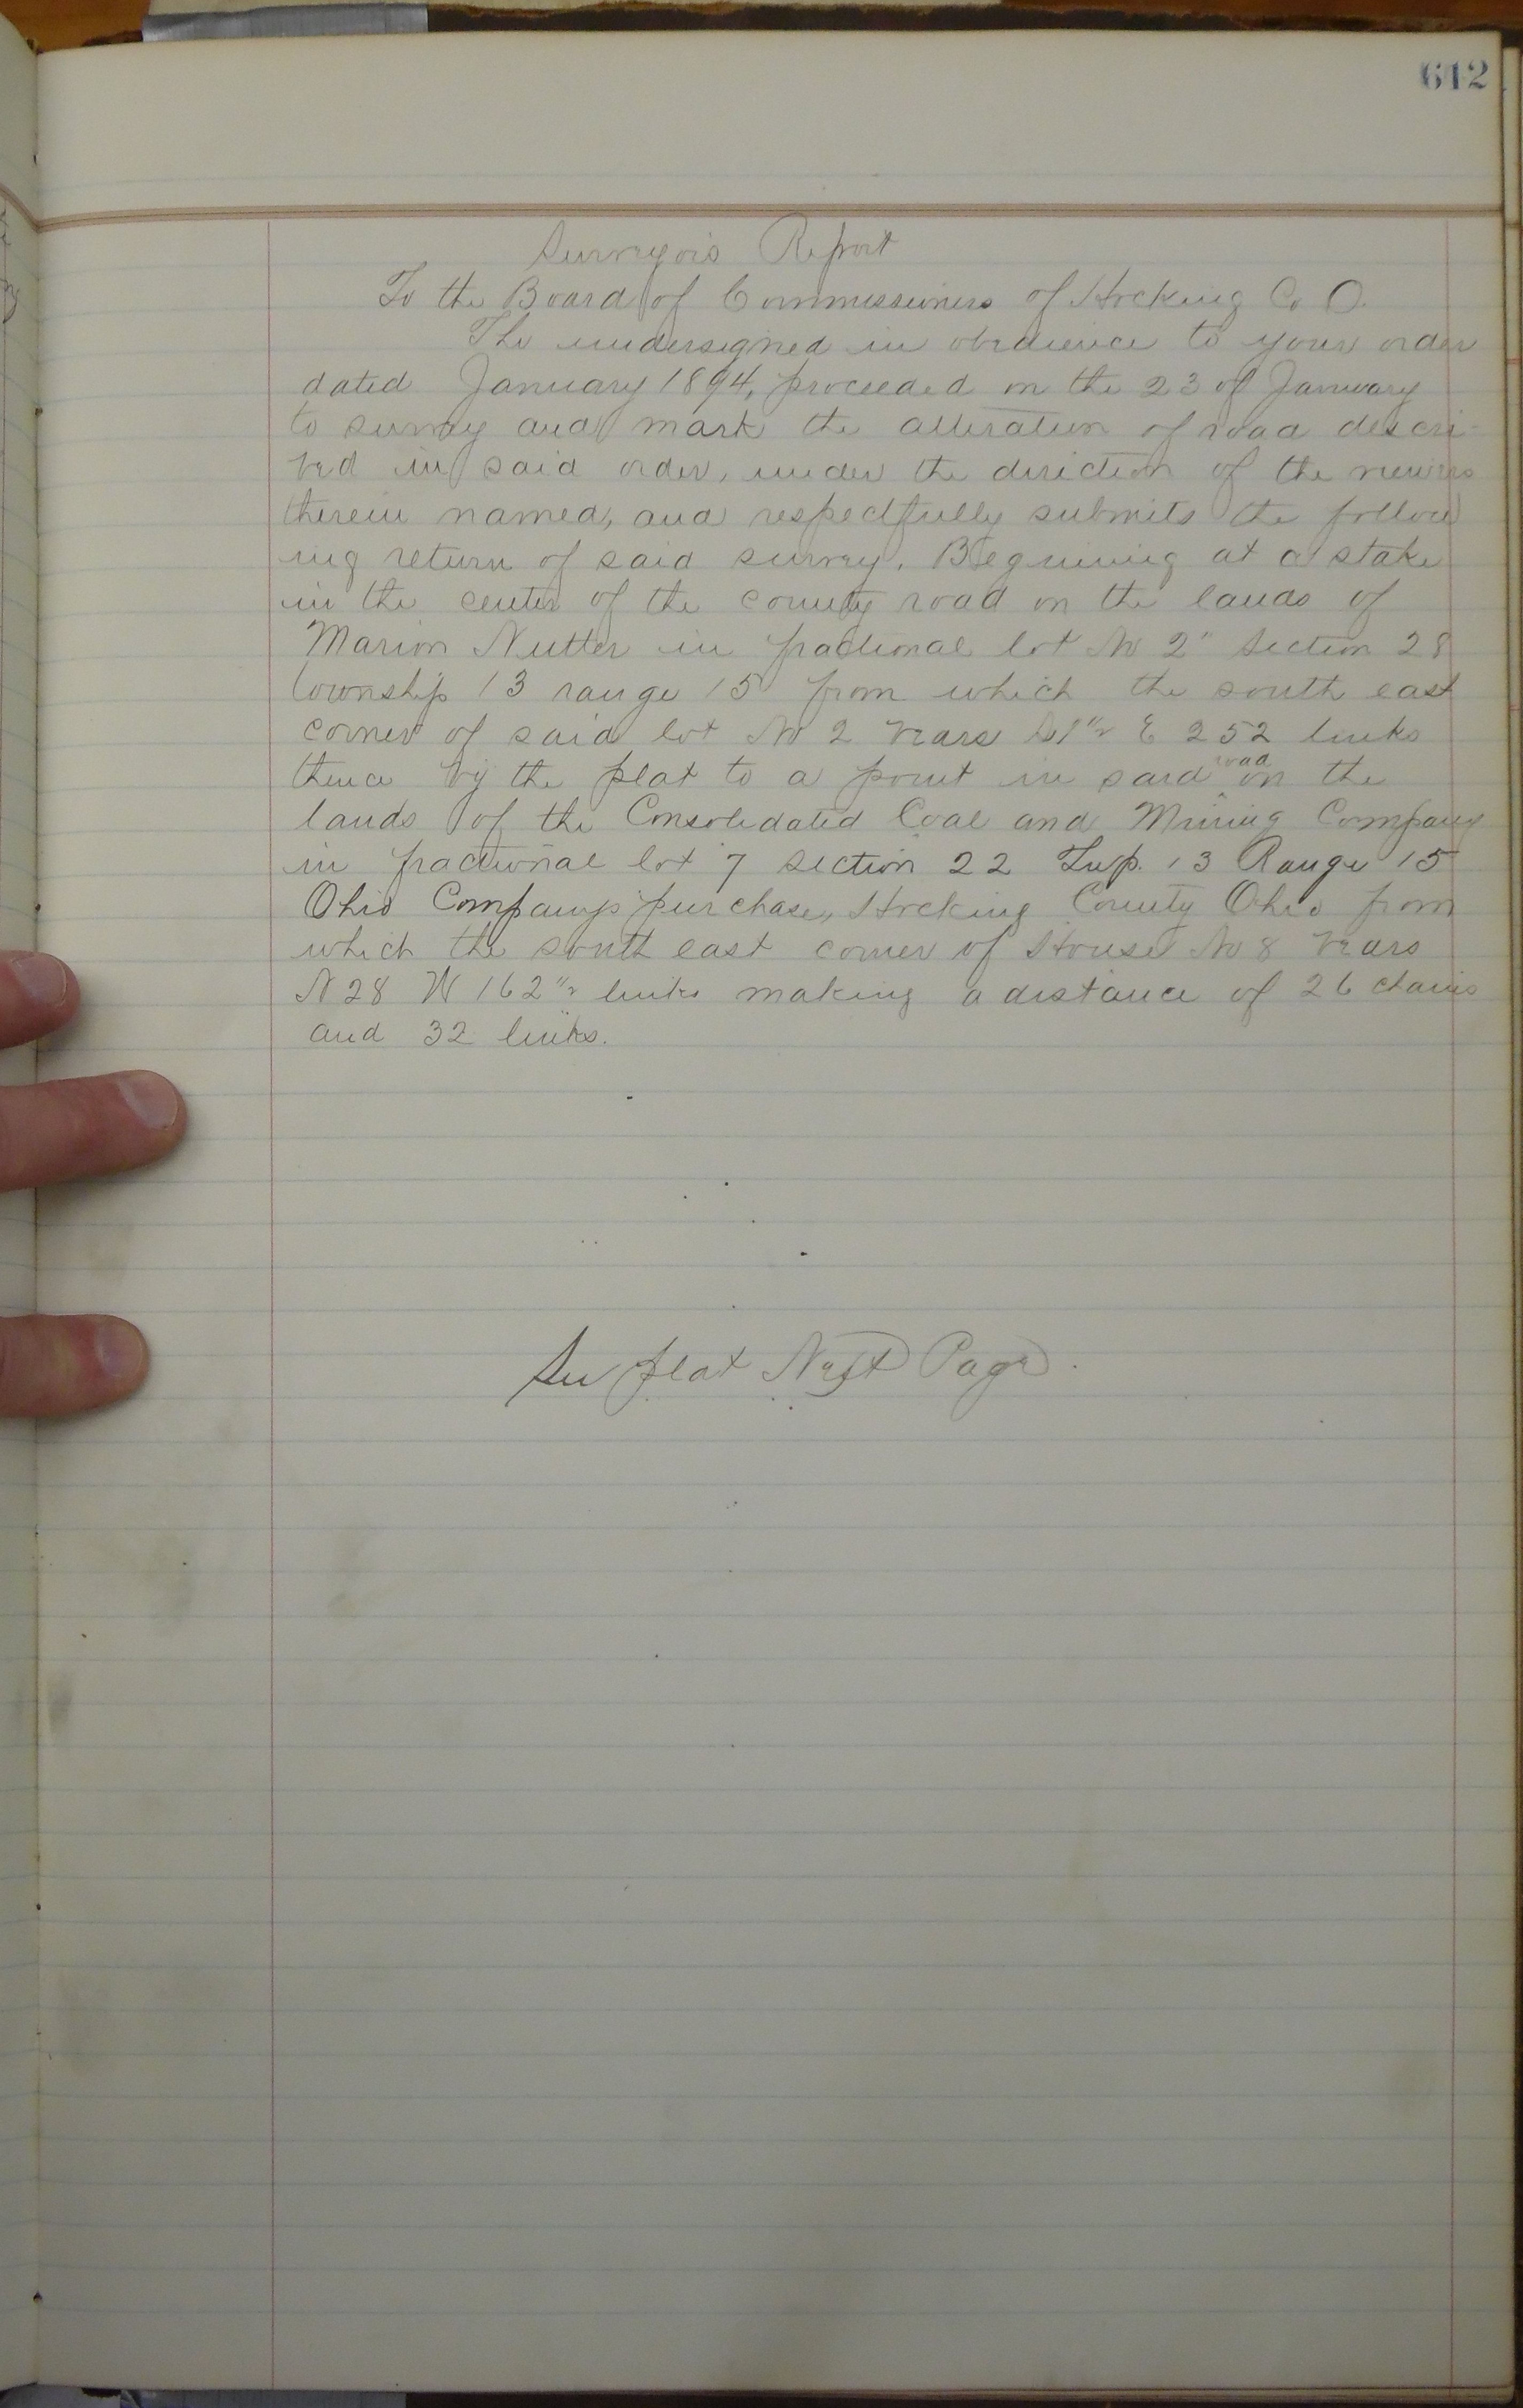 612
Surveyors Report
To the Board of Commissioners of Hocking Co O.
The undersigned in obedience to your order
dated January 1894, proceeded on the 23 of January
to survey and mark the alteration of road descri-
bed in said order, under the direction of the viewers
therein named, and respectfully submits the follow
ing return of said survey. Begining at a stake
in the center of the county road on the lands of
Marion Nutter in fractional lot No 2" Section 28
township 13 range 15 from which the south east
corner of said lot No 2 bears E 252 links
thence by the plat to a point in said road on the
lands of the Consolidated Coal and Mining Company
in fractional lot 7 section 22 Twp. 13 Range 15
Ohio Companys purchase, Hocking County Ohio from
which the south east corner of House No 8 bears
N 28 W 162 links making a distance of 26 chains
and 32 links.
See plat Next Page.